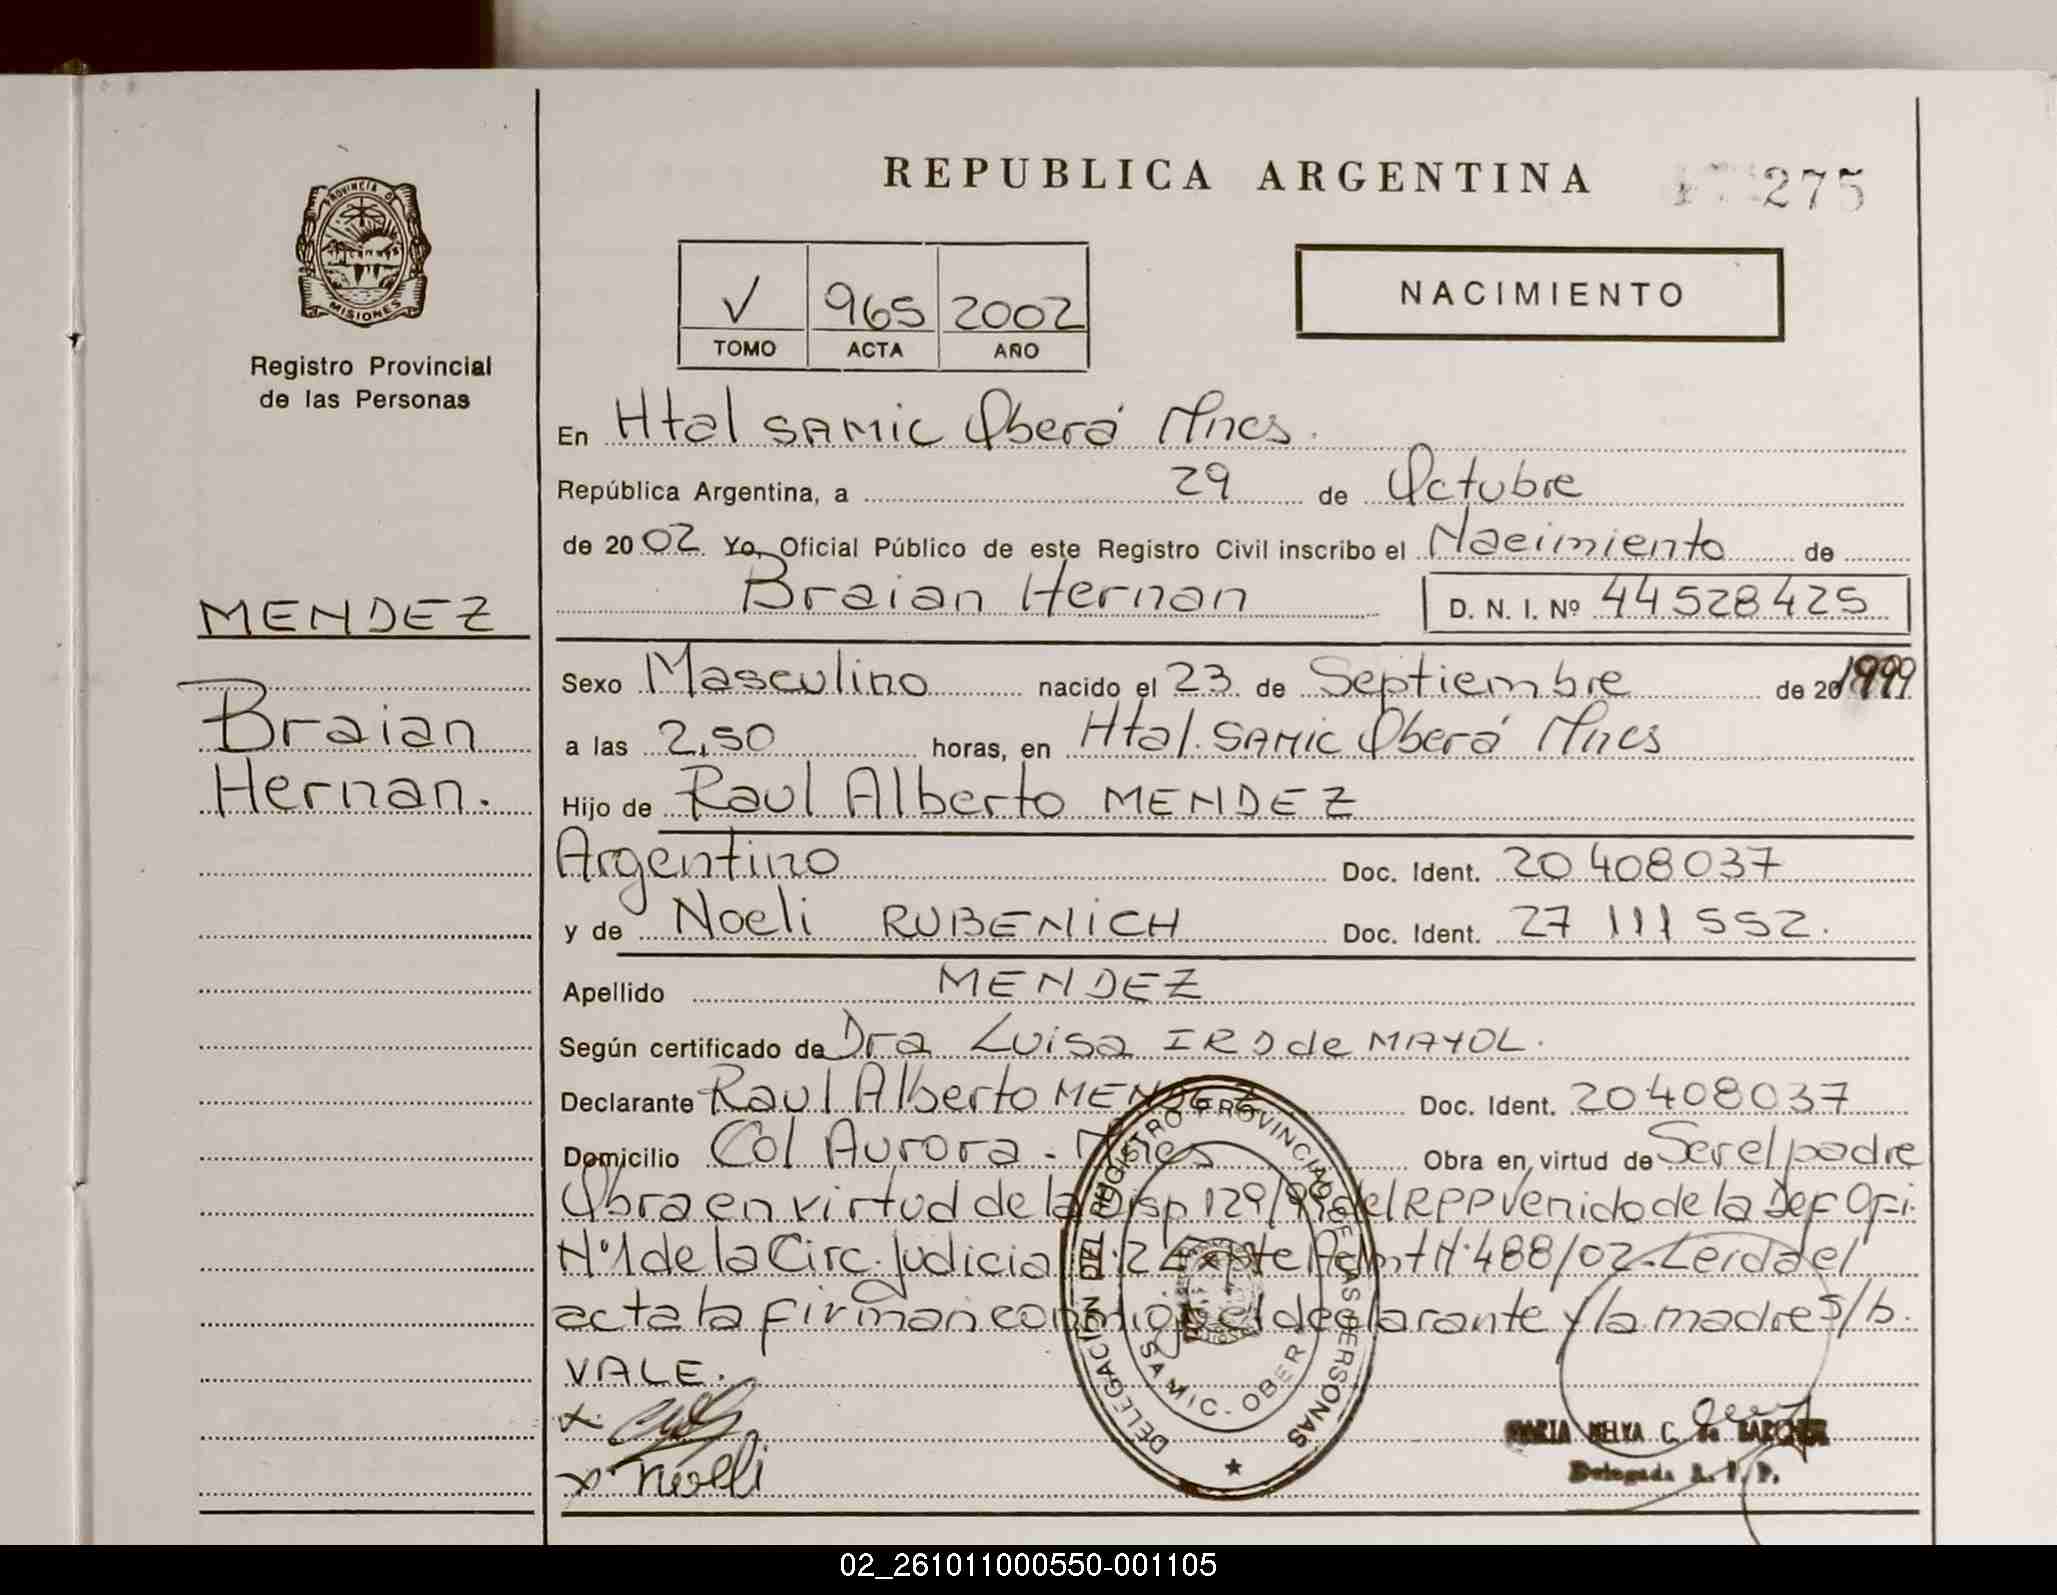 REPUBLICA ARGENTINA
275
PROVINCIA DE
MISIONES
Registro Provincial
de las Personas
V 965 2002
TOMO ACTA AÑO
NACIMIENTO
En Htal SAMIC Oberá Mnes.
República Argentina, a 29 de Octubre
de 20 02 Yo, Oficial Público de este Registro Civil inscribo el Nacimiento de
Braian Hernan D. N. I. Nº 44528425
MENDEZ
Braian
Hernan.
Sexo Masculino nacido el 23 de Septiembre de 20 1999
a las 2,50 horas, en Htal. SAMIC Oberá Mnes
Hijo de Raul Alberto MENDEZ
Argentino Doc. Ident. 20 408037
y de Noeli RUBENICH Doc. Ident. 27 111 552.
Apellido MENDEZ
Según certificado de Dra Luisa de MAYOL.
Declarante Raul Alberto MENDEZ Doc. Ident. 20408037
Domicilio Col Aurora - Mnes Obra en virtud de Ser el padre
Obra en virtud de la Disp 129/99 del RPP venido de la Def Ofi.
Nº1 de la Circ. Judicial Nº 2 Expte Admt Nº 488/02. Leida el
acta la firman conmigo el declarante y la madre S/b.
VALE.
x.
x Noelí
DELEGACION DEL REGISTRO PROVINCIAL DE LAS PERSONAS
SAMIC - OBERA
MARIA C. de
Delegada R. P. P.
02_261011000550-001105